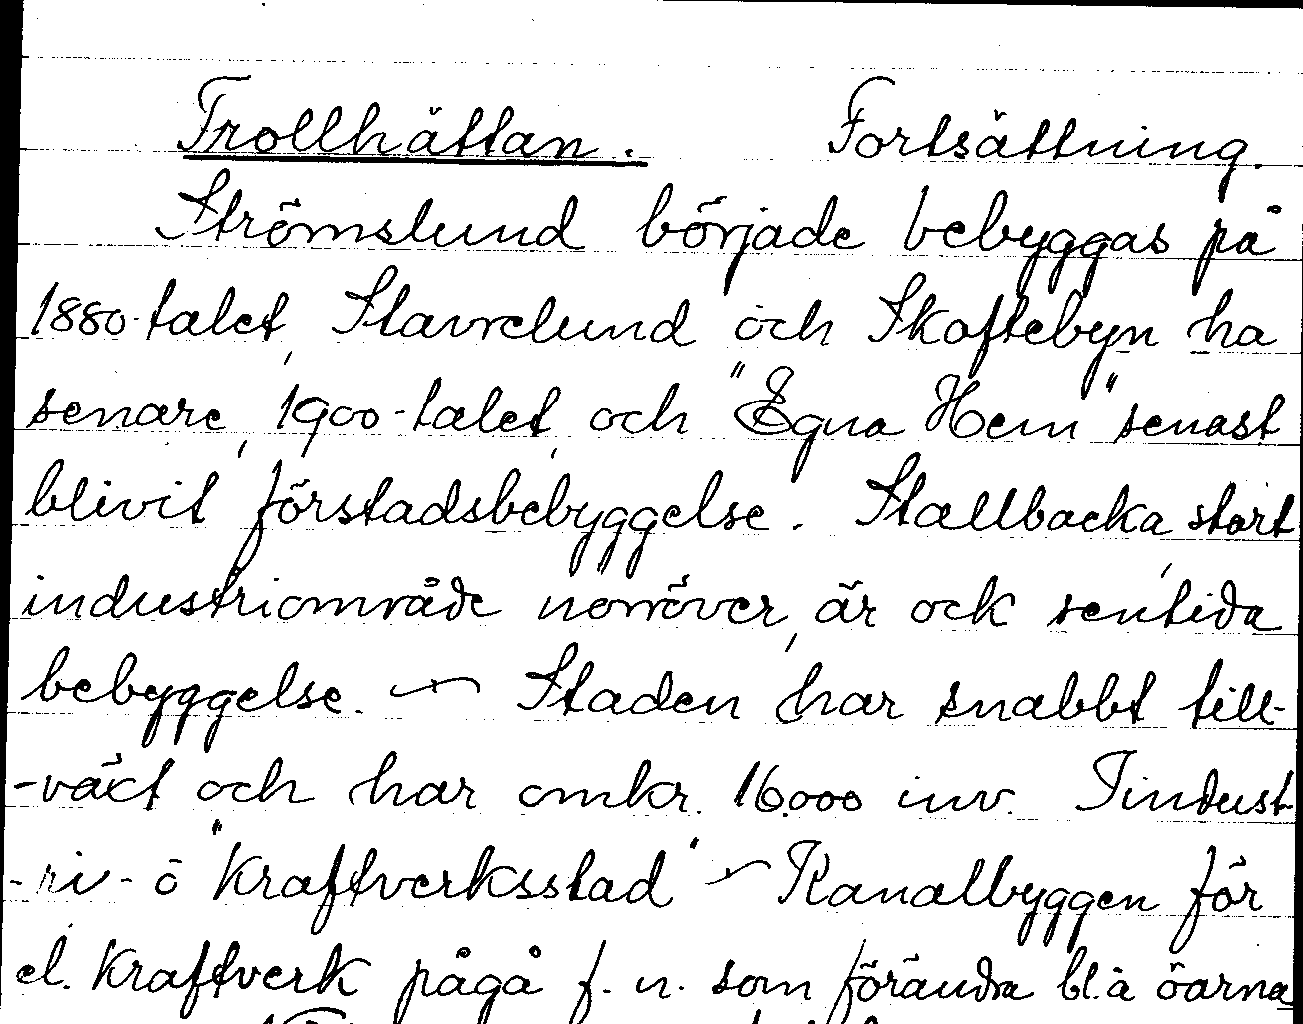 Trollhättan. Fortsättning.
Strömslund började bebyggas på
1880-talet, Stavrelund och Skoftebyn ha
senare, 1900-talet, och "Egna Hem" senast
blivit förstadsbebyggelse. Stallbacka, stort
industriområde norröver, är ock sentida
bebyggelse. — Staden har snabbt till-
-växt och har omkr. 16.000 inv. Indust-
-ri- o "kraftverksstad" — Kanalbyggen för
el. kraftverk pågå f. n. som förändra bl.a öarna